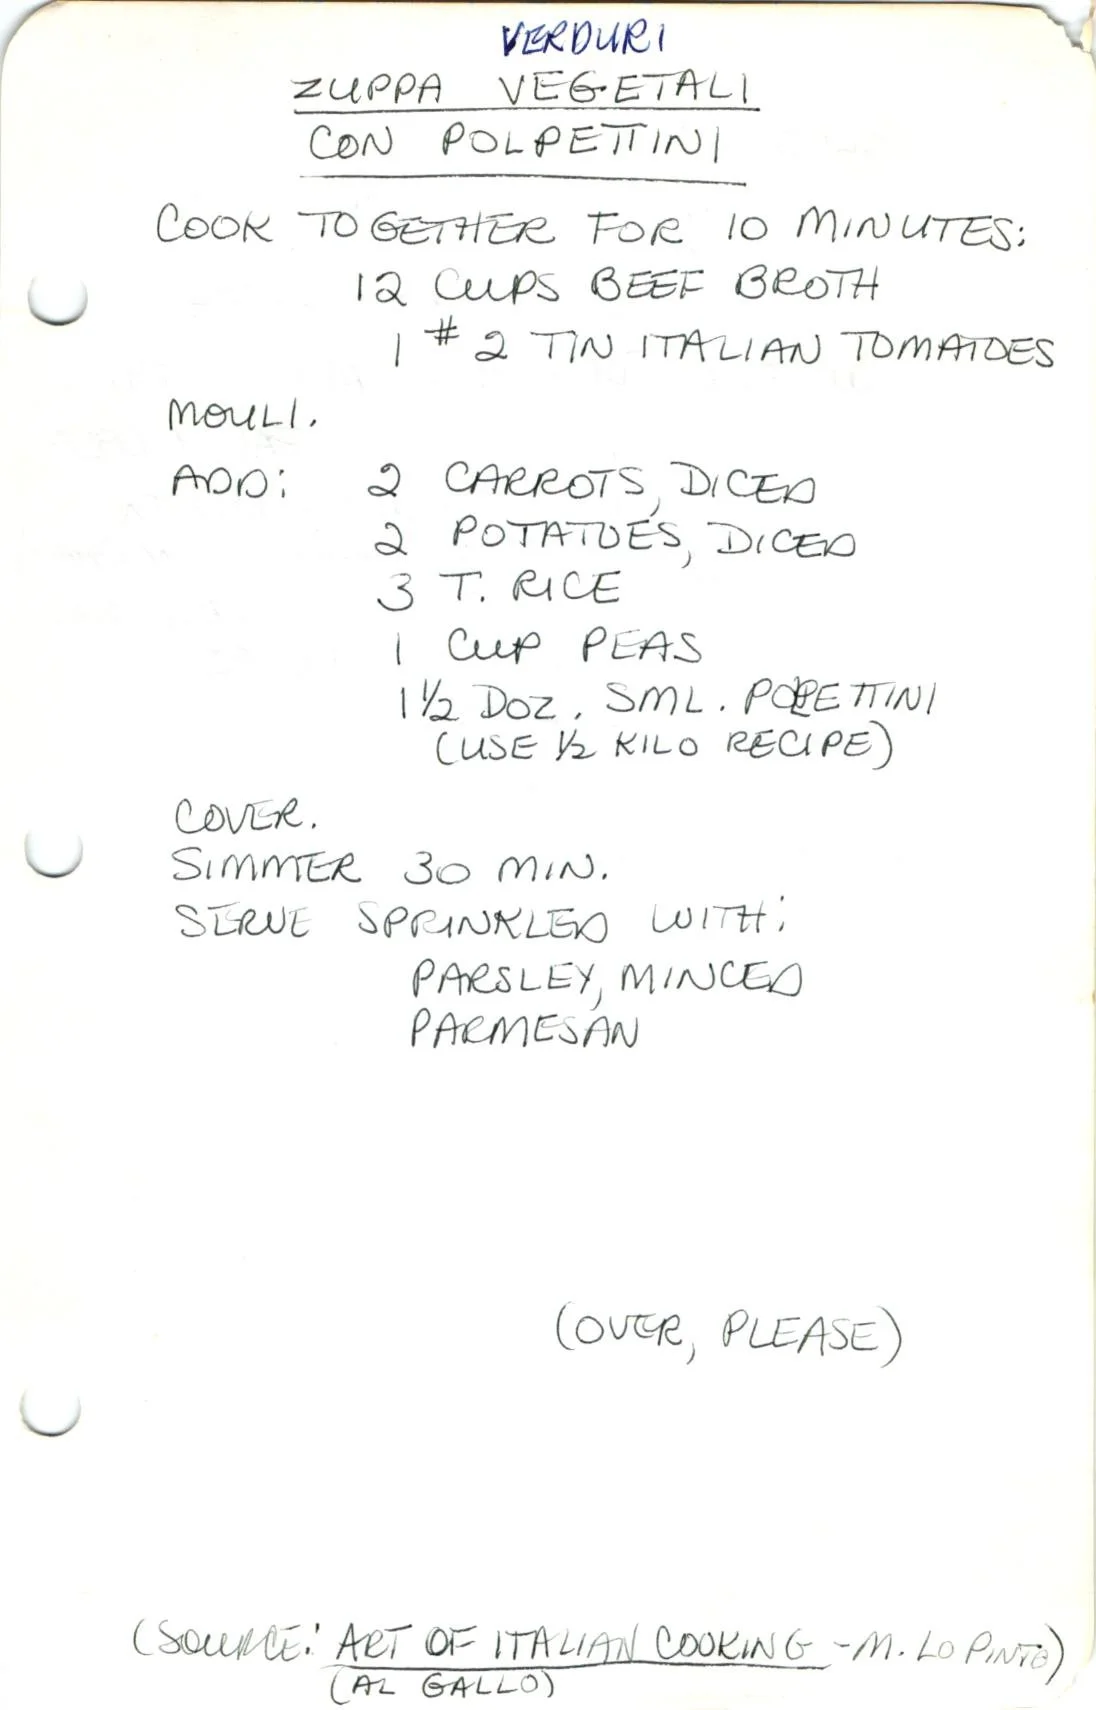 VERDURI
ZUPPA VEGETALI
CON POLPETTINI
COOK TOGETHER FOR 10 MINUTES:
12 CUPS BEEF BROTH
1 #2 TIN ITALIAN TOMATOES
MOULI.
ADD: 2 CARROTS, DICED
2 POTATOES, DICED
3 T. RICE
1 CUP PEAS
1 ½ DOZ. SML. POLPETTINI
(USE ½ KILO RECIPE)
COVER.
SIMMER 30 MIN.
SERVE SPRINKLED WITH:
PARSLEY, MINCED
PARMESAN
(OVER, PLEASE)
(SOURCE: ART OF ITALIAN COOKING - M. LO PINTO)
(AL GALLO)